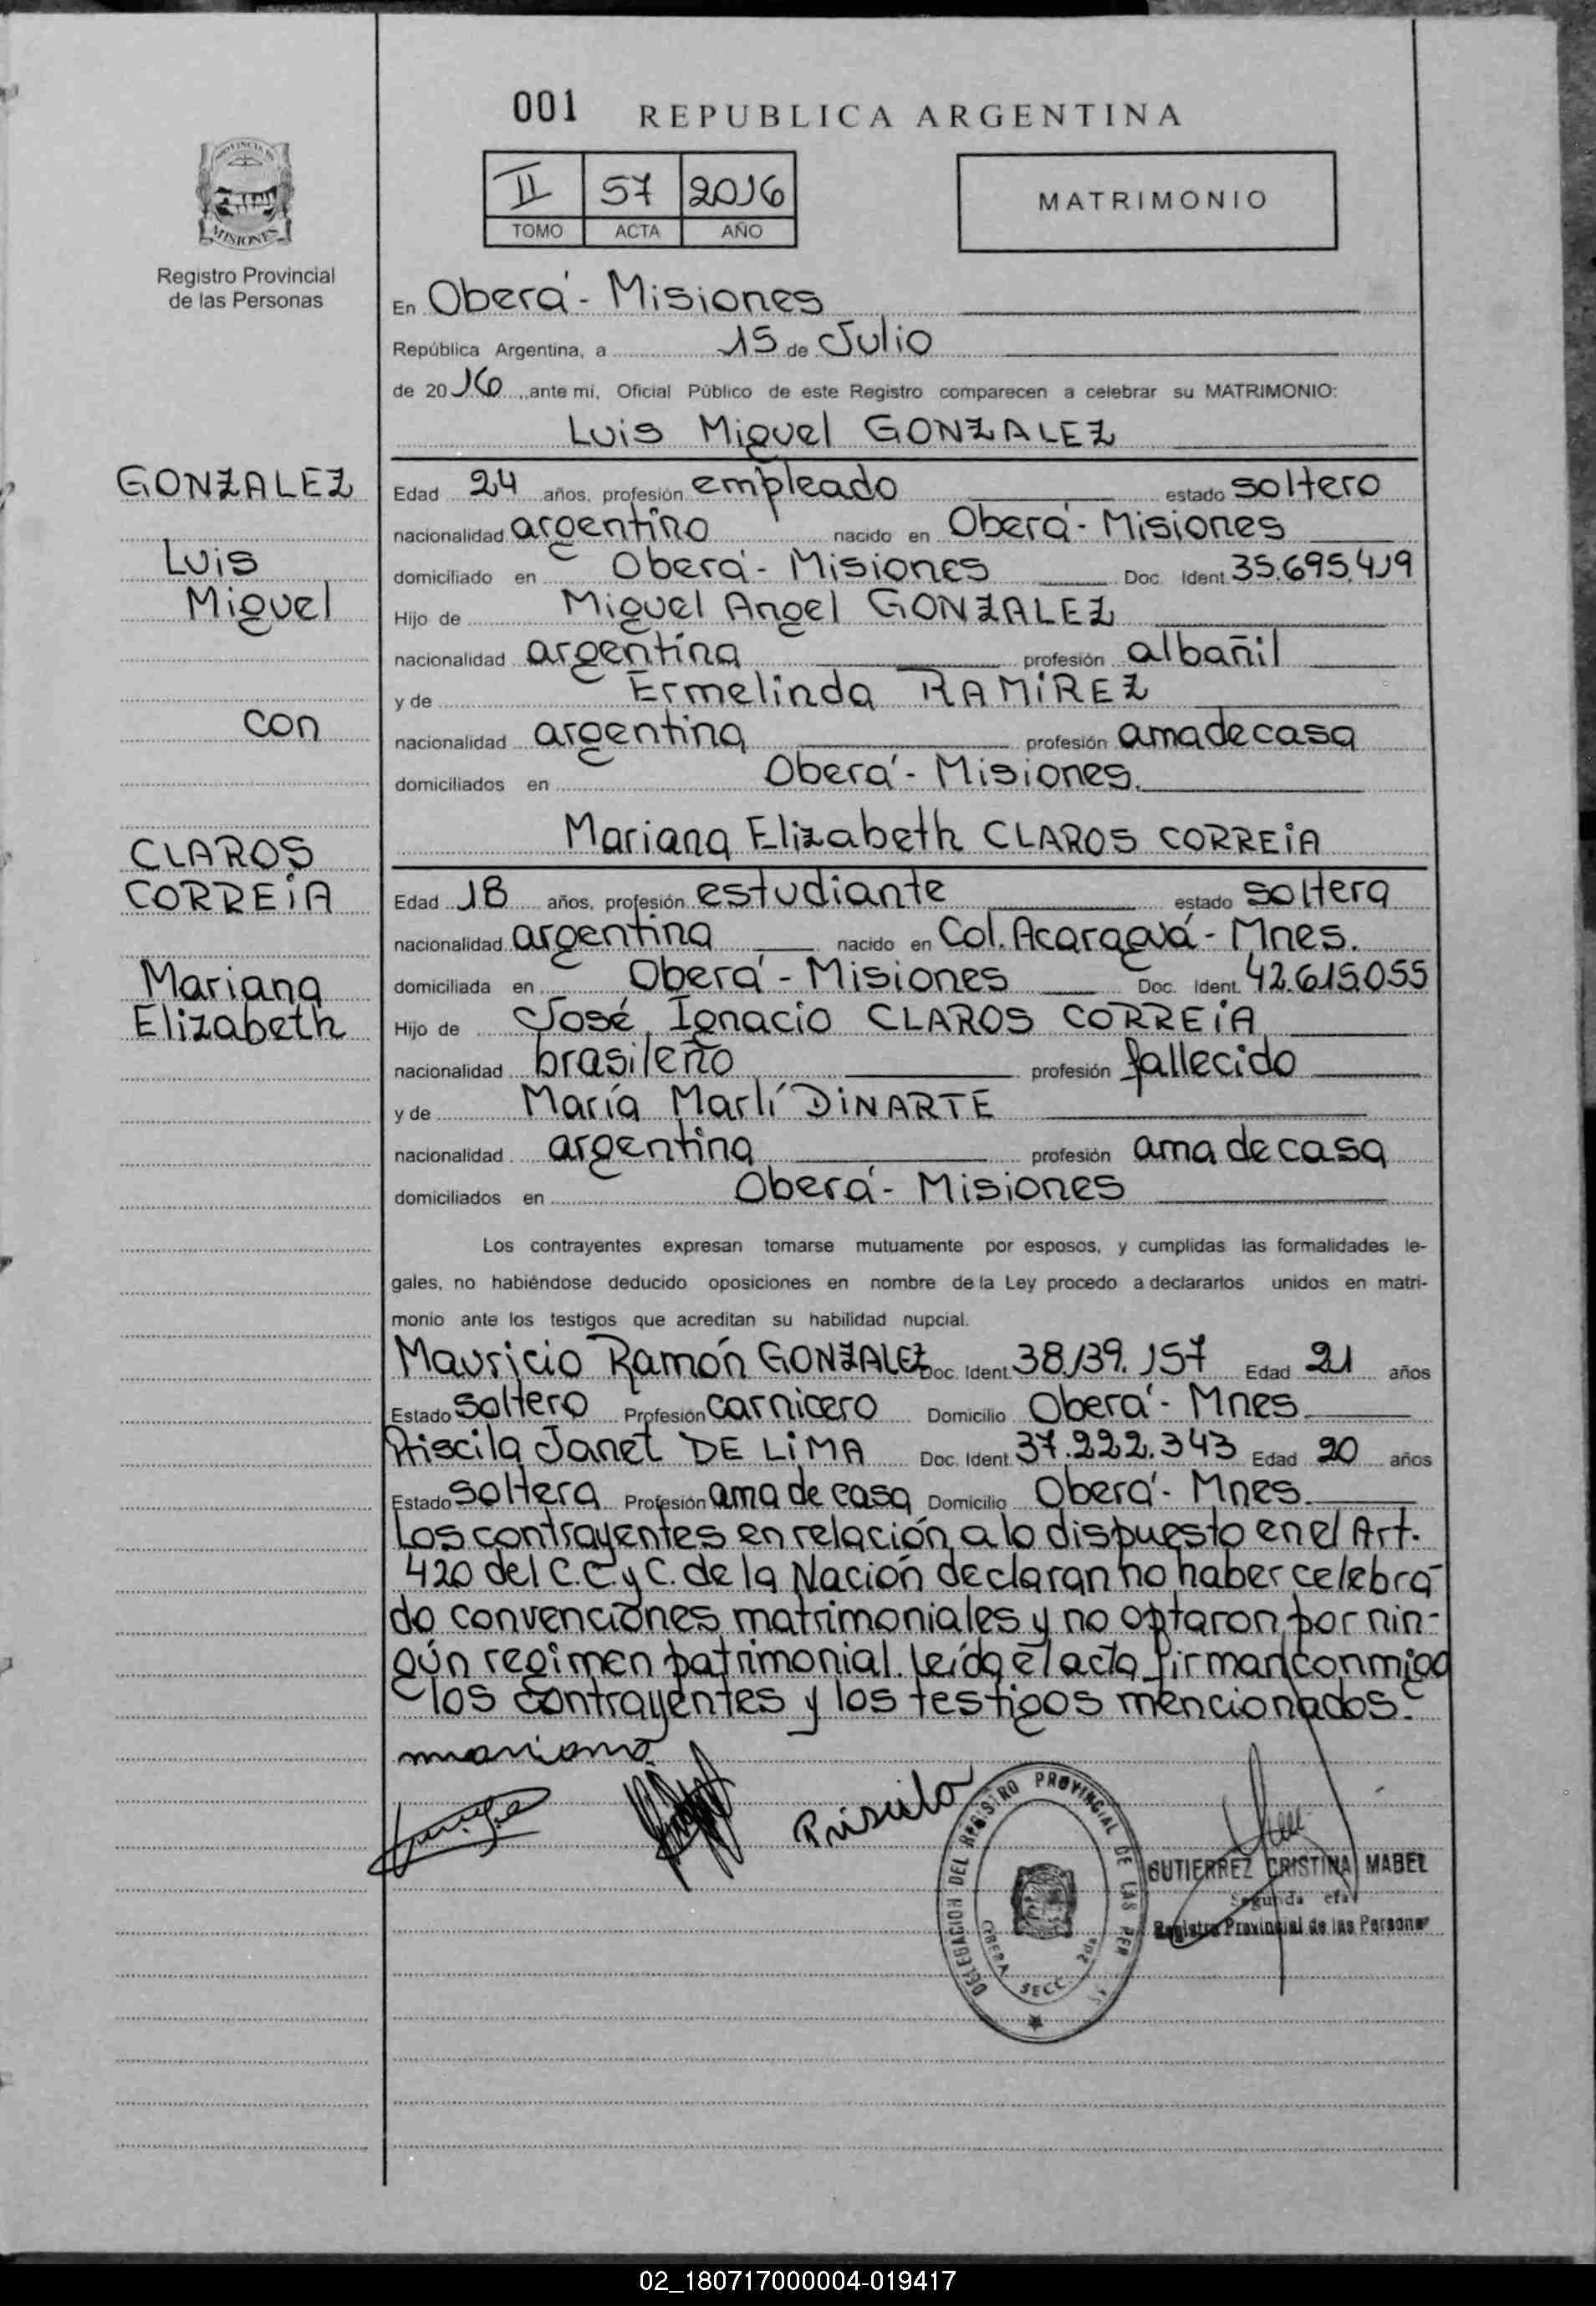 001 REPUBLICA ARGENTINA
PROVINCIA DE
MISIONES
Registro Provincial
de las Personas
II 57 2016
TOMO ACTA AÑO
MATRIMONIO
En Oberá - Misiones
República Argentina, a 15 de Julio
de 2016, ante mí, Oficial Público de este Registro comparecen a celebrar su MATRIMONIO:
Luis Miguel GONZALEZ
GONZALEZ
Luis
Miguel
con
CLAROS
CORREIA
Mariana
Elizabeth
Edad 24 años, profesión empleado estado soltero
nacionalidad argentino nacido en Oberá - Misiones
domiciliado en Oberá - Misiones Doc. Ident. 35.695.419
Hijo de Miguel Angel GONZALEZ
nacionalidad argentina profesión albañil
y de Ermelinda RAMIREZ
nacionalidad argentina profesión ama de casa
domiciliados en Oberá - Misiones.
Mariana Elizabeth CLAROS CORREIA
Edad 18 años, profesión estudiante estado soltera
nacionalidad argentina nacido en Col. Acaraguá - Mnes.
domiciliada en Oberá - Misiones Doc. Ident. 42.615.055
Hijo de José Ignacio CLAROS CORREIA
nacionalidad brasileño profesión fallecido
y de María Marlí DINARTE
nacionalidad argentina profesión ama de casa
domiciliados en Oberá - Misiones
Los contrayentes expresan tomarse mutuamente por esposos, y cumplidas las formalidades le-
gales, no habiéndose deducido oposiciones en nombre de la Ley procedo a declararlos unidos en matri-
monio ante los testigos que acreditan su habilidad nupcial.
Mauricio Ramón GONZALEZ Doc. Ident. 38.139.157 Edad 21 años
Estado soltero Profesión carnicero Domicilio Oberá - Mnes.
Priscila Janet DE LIMA Doc. Ident. 37.222.343 Edad 20 años
Estado soltera Profesión ama de casa Domicilio Oberá - Mnes.
Los contrayentes en relación a lo dispuesto en el Art.
420 del C.C. y C. de la Nación declaran no haber celebra-
do convenciones matrimoniales y no optaron por nin-
gún regimen patrimonial. Leída el acta firman conmigo
los contrayentes y los testigos mencionados.
mariana
Priscila
DELEGACION DEL REGISTRO PROVINCIAL DE LAS PER
OBERA SECC. 2da
GUTIERREZ CRISTINA MABEL
Segunda
Registro Provincial de las Personas
02_180717000004-019417